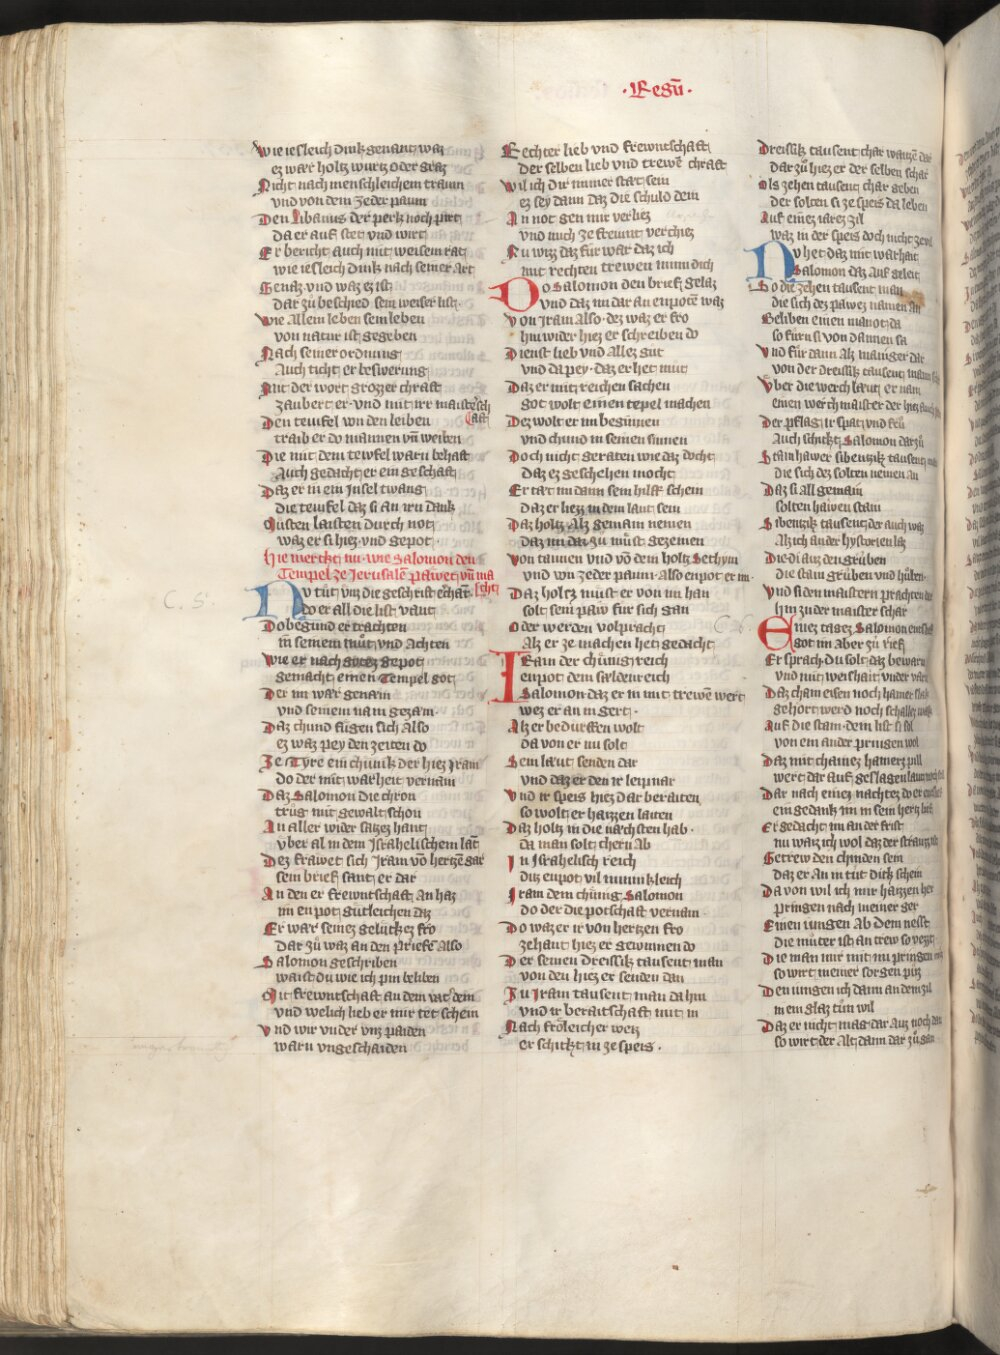 ·Regū·
Wie iesleich dink genant waz
ez wær holtz wurtz oder graz
Nicht nach menschleichem traum
vnd von dem zeder paum
Den Libanus der perk noch pirt
da er auf stet vnd wirt
Er bericht auch mit weisem rat
wie iesleich dink nach seiner art
Genaz vnd waz ez ist
dar zů beschied sein weiser list
Wie allem leben sein leben
von natur ist gegeben
Nach seiner ordnung
Auch ticht er beswerung
Mit der wort grozer chraft
zaubert er vnd mit irr maisterschaft
Den teuifel von den leiben
traib er do mannen vn̄ weiben
Die mit dem tewfel warn behaft
Auch gedacht er ein geschaft
Daz er in ein Insel twang
die teuifel daz si an irn dank
Můsten laisten durch not
waz er si hiez vnd gepot
Hie merkt nu wie Salomon den
Tempel ze Jerusalē pawet vn̄ macht
Nv tůt vns die geschrift erchant
do er all die list vant
Do begund er trachten
in seinem můt vnd Achten
Wie er nach gotez gepot
gemacht einen Tempel got
Der im wær genæm
vnd seinem nam gezam
Daz chund fůgen sich Also
ez waz pey den zeiten do
Ze Tyre ein chůnik der hiez Jram
do der mit warheit vernam
Daz Salomon die chron
trůg mit gewalt schon
An aller wider satzez hant
vber al in dem Israhelischem lāt
Dez frawet sich Jram vō hertzē gar
sein brief sant er dar
An den er frewntschaft An haz
im enpot gůtleichen daz
Er wær seinez gelůkez fro
Dar zů waz an den Priefē Also
Salomon geschriben
waist du wie ich pin beliben
Mit frewntschaft an dem vat̄ dein
vnd welich lieb er mir tet schein
Vnd wir vnder vns paiden
warn vngeschaiden
Rechter lieb vnd frewntschaft
der selben lieb vnd trewē chraft
Wil ich dir immer stæt sein
ez sey dann daz die schuld dein
An not gen mir verliez
vnd mich ze frewnt verchiez
Nu wizz daz fůr war daz ich
mit rechten trewen minn dich
Do Salomon den brief gelaz
vnd daz im dar an enpotē waz
Von Jram Also dez waz er fro
hin wider hiez er schreiben do
Dienst lieb vnd Allez gůt
vnd da pey daz er het můt
Daz er mit reichen sachen
got wolt einen tepel machen
Dez wolt er im beginnen
vnd chund in seinen sinnen
Doch nicht geraten wie daz docht
daz ez geschehen mocht
Er tæt im dann sein hilff schein
daz er liezz in dem lant sein
Daz holtz Alz gemain nemen
daz im dar zu můst gezemen
Von tannen vnd vō dem holtz Sethym
vnd vm zeder paum Also enpot er im
Daz holtz můst er von im han
solt sein paw fůr sich gan
Oder werden volpracht
Alz er ze machen het gedacht
Iram der chůnig reich
enpot dem sældenreich
Salomon daz er in mit trewē wert
wez er an in gert
Alz er bedurfften wolt
da von er nu solt
Sein læut senden dar
vnd daz er den ir leipnar
Vnd ir speis hiez dar beraiten
so wolt er haizzen laiten
Daz holtz in die næchsten hab
da man solt chern Ab
In Israhelisch reich
ditz enpot vil minnkleich
Iram dem chůnig Salomon
do der die potschaft vernam
Do waz er ir von hertzen fro
zehant hiez er gewinnen do
Der seinen dreissik tausent man
von den hiez er senden dan
Zu Jram tausent man da hin
vnd ir beraitschaft mit in
Nach frőleicher weiz
er schikt in ze speis
Dreissik tausent char waitzē dar
dar zů hiez er der selben schar
Als zehen tausent char geben
der solten si ze speis da leben
Auf einez iarez zil
waz in der speis doch nicht ze vil
Nv het daz mit warhait
Salomon daz Auf geleit
So die zehen tausent man
die sich dez pawez namen an
Beliben einen manot da
so fůrn si von dannen sa
Vnd fůr dann Alz maniger dar
von der dreissik tausent
Vber die werch læut er nam
einen werchmaister der hiez
Der pflag ir spat vnd frů
Auch schikt Salomon dar zů
Stain hawer sibentzik tausent
die sich dez solten nemen An
Daz si all gemain
solten hawen stain
Sibentzik tausent der auch waz
Alz ich an der hystorien laz
Die di auz den grůben
die stain grůben vnd hůben
Vnd si den maistern prachten
hin zu der maister schar
Einez tagez Salomon
got im aber zů rief
Er sprach du solt daz bewarn
vnd mit weishait vnder varn
Daz chain eisen noch hamer slak
gehort werd noch schallez
Auf die stain dem list si sol
von ein ander pringen wol
Daz mit chainez hamerz pill
wert dar auf geslagen
Dar nach einez nachtez do er
ein gedank im in sein hertz
Er gedacht im an der frist
nu waiz ich wol daz der strauzz
Getrew den chinden sein
daz er An in tůt dikk schein
Da von wil ich mir haizzen her
pringen nach meiner ger
Einen iungen Ab dem nesst
die můter ist an trew so vesst
Die man mir mit im pringen
so wirt meiner sorgen půz
Den iungen ich dann an dem zil
in ein glaz tůn wil
Daz er nicht mag dar auz noch
so wirt der Alt dann dar zů gan
C. 5